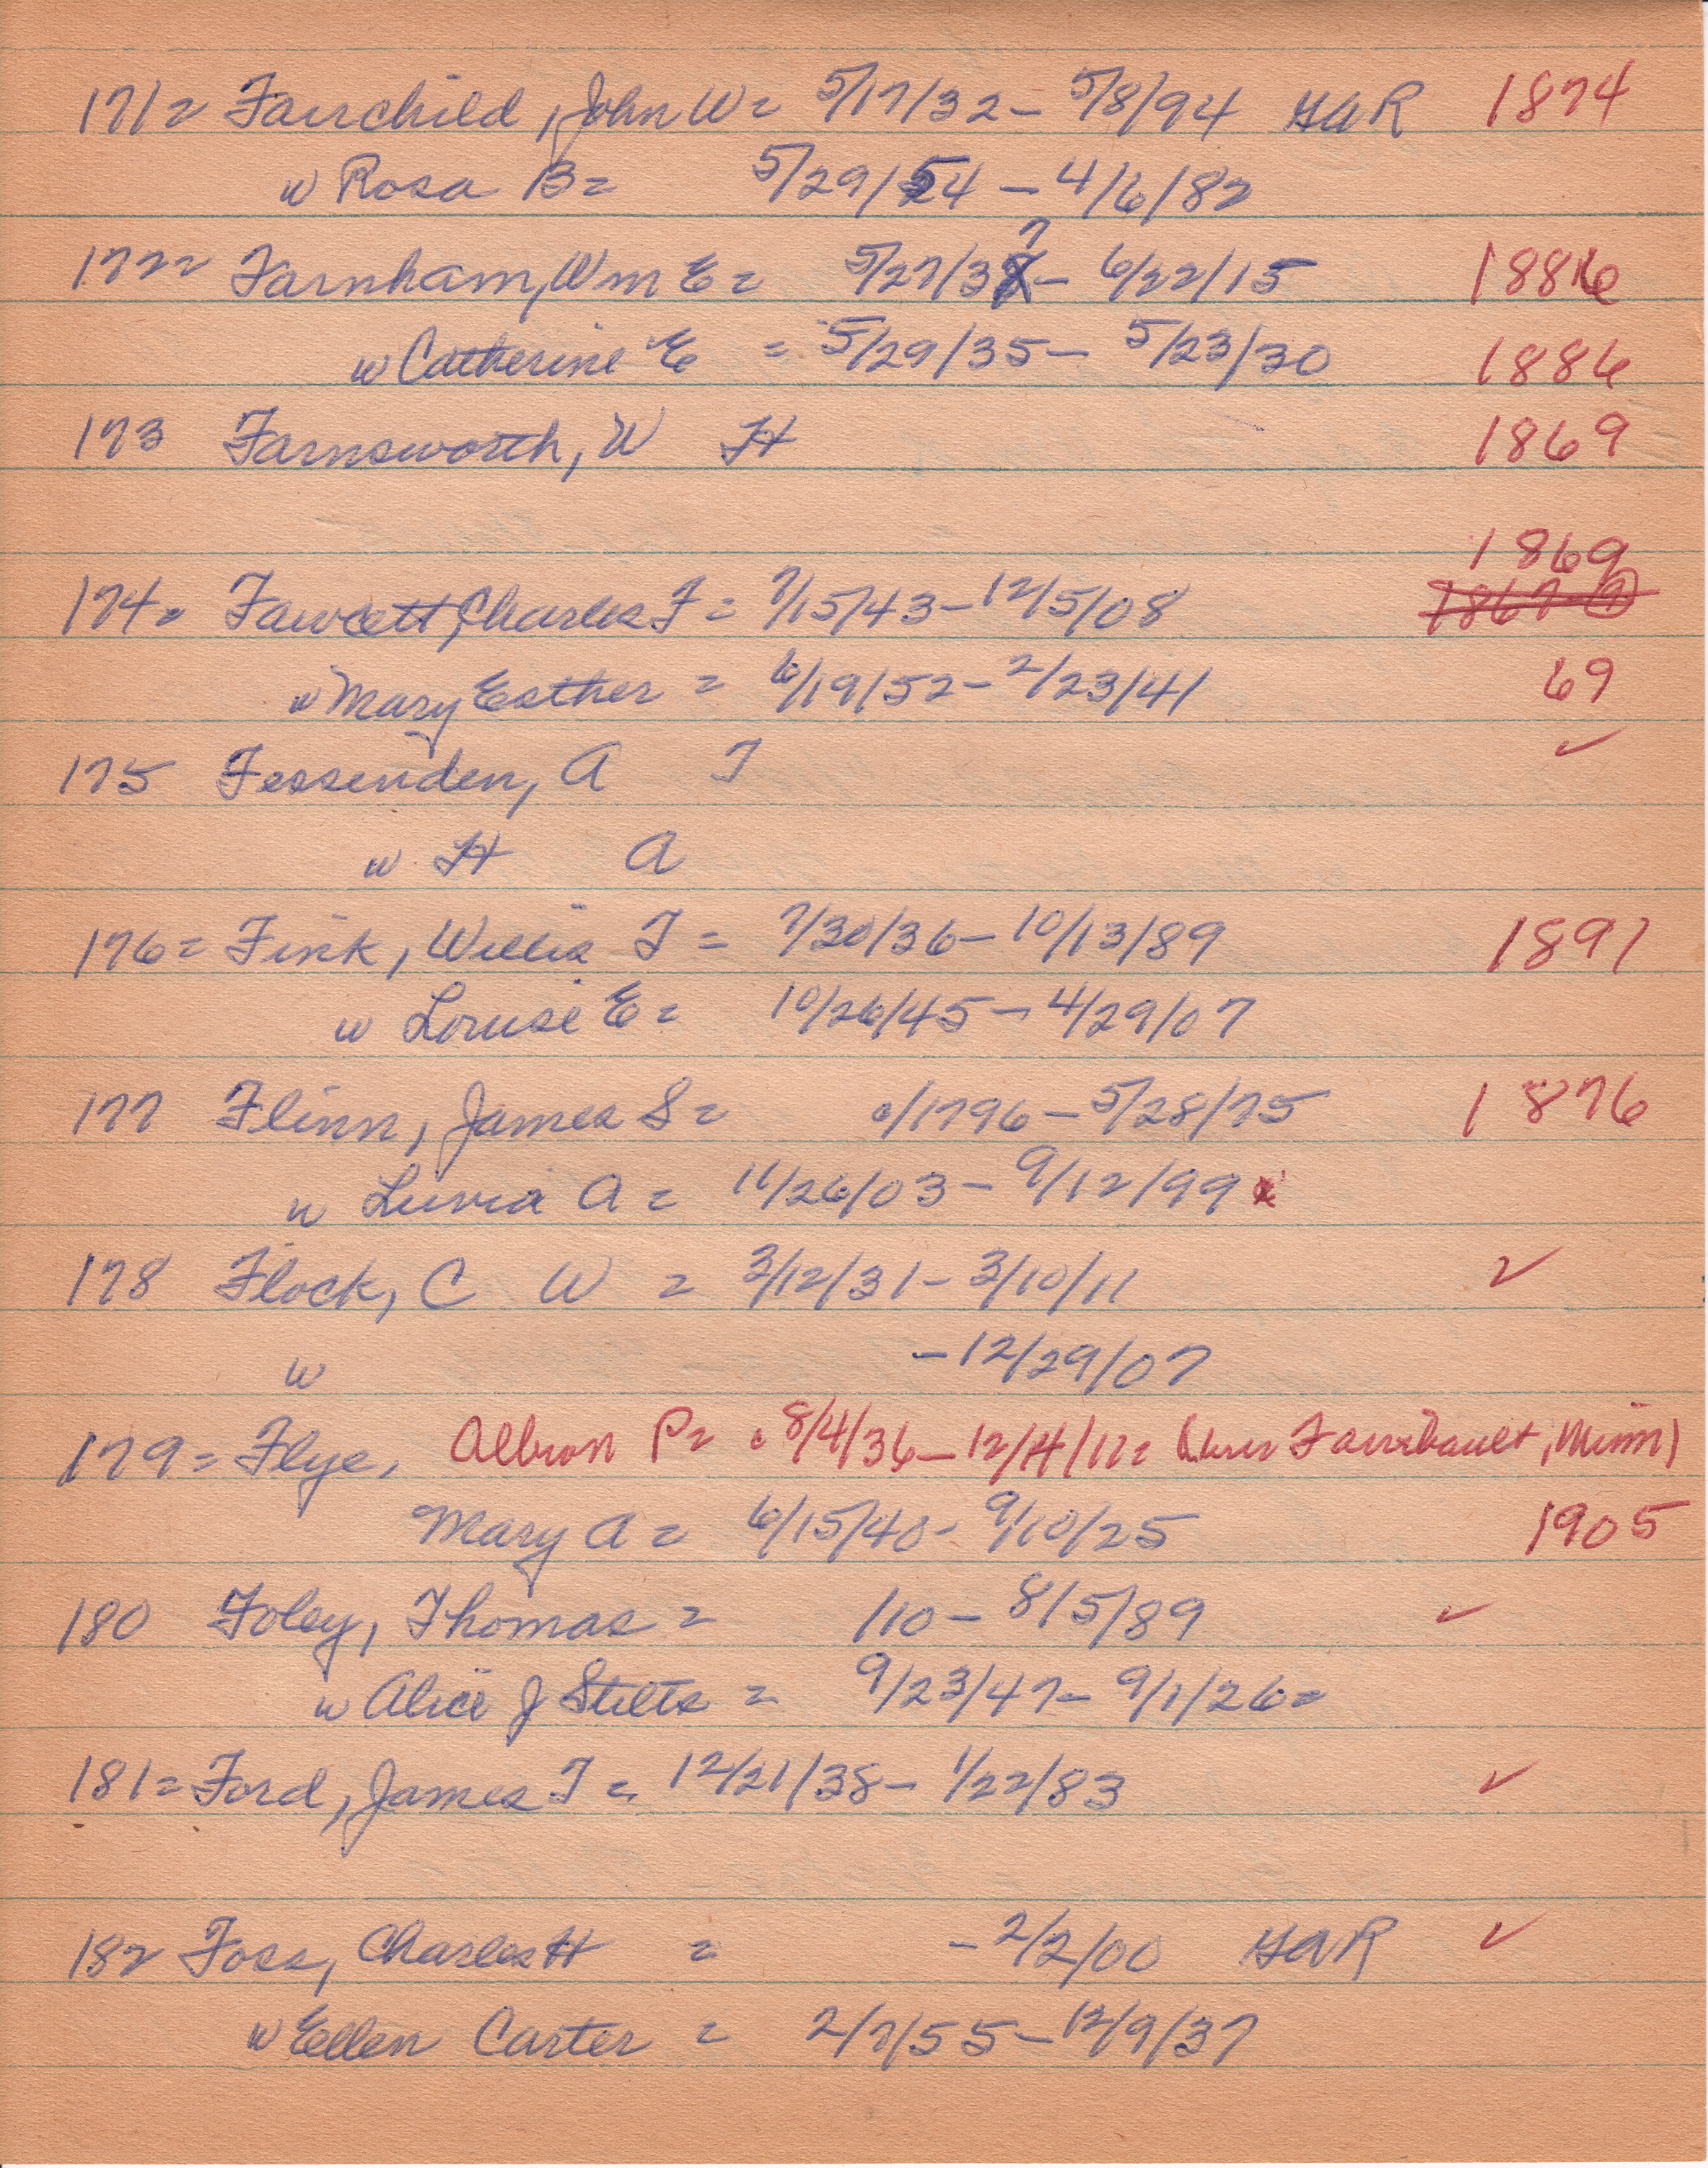 171= Fairchild, John W= 5/17/32 - 5/8/94 GAR 1874
w Rosa B= 5/29/54 - 4/6/82
172= Farnham, Wm E= 5/27/37 - 6/22/15 1886
w Catherine E = 5/29/35 - 5/23/30 1886
173 Farnsworth, W H 1869
1869
174= Fawcett, Charles F = 7/15/43 - 12/5/08 1867
w Mary Esther = 6/19/52 - 2/23/41 69
175 Fessenden, A T ✓
w H A
176= Fink, Willis T = 7/30/36 - 10/13/89 1891
w Louise E= 10/26/45 - 4/29/07
177 Flinn, James S= c/1796 - 5/28/75 1876
w Luvia A= 11/26/03 - 9/12/99 x
178 Flock, C W = 3/12/31 - 3/10/11 ✓
w - 12/29/07
179= Flye, Albion P= 8/4/36 - 12/4/11= Fairibault, Minn)
Mary A= 6/15/40 - 9/10/25 1905
180 Foley, Thomas = /10 - 8/5/89 ✓
w Alice J Stilts = 9/23/47 - 9/1/26=
181= Ford, James T= 12/21/38 - 1/22/83 ✓
182 Foss, Charles H = - 2/2/00 GAR ✓
w Ellen Carter = 2/7/55 - 12/9/37